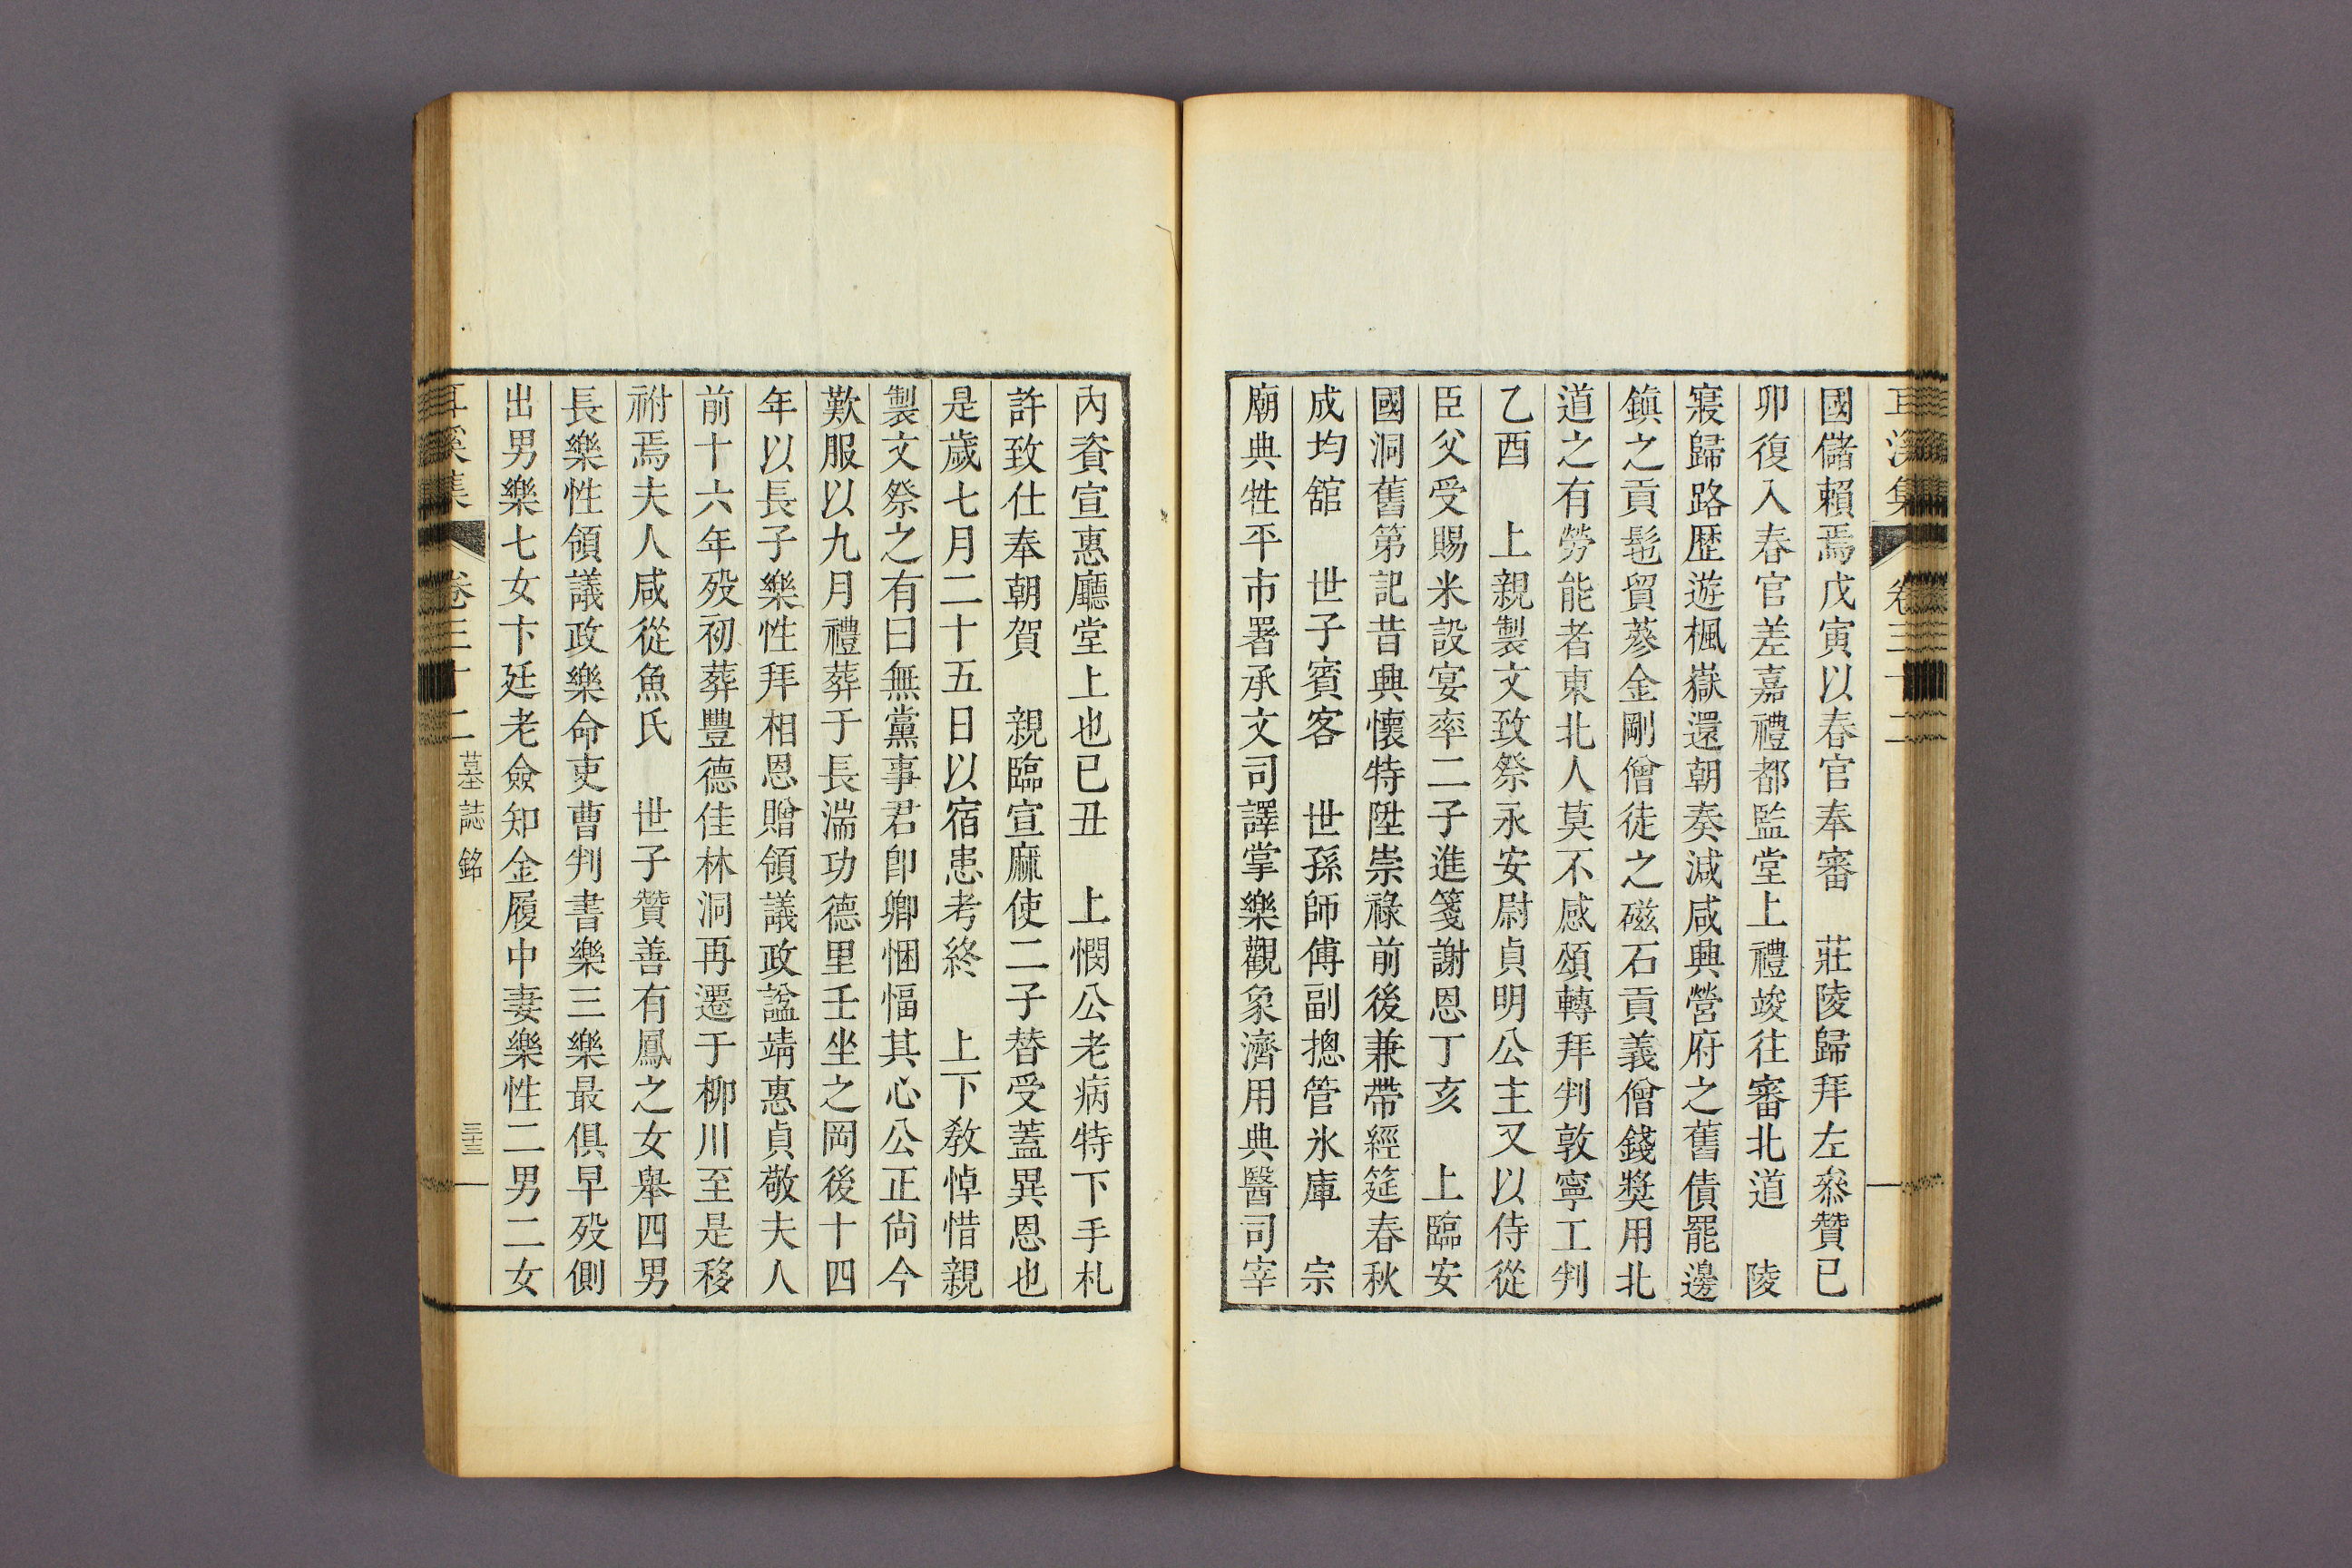 耳溪集 卷三十二
國儲賴焉戊寅以春官奉審 莊陵歸拜左叅贊已
卯復入春官差嘉禮都監堂上禮竣往審北道 陵
寢歸路歷遊楓嶽還朝奏減咸興營府之舊債罷邊
鎮之貢髢貿蔘金剛僧徒之磁石貢義僧錢獎用北
道之有勞能者東北人莫不感頌轉拜判敦寧工判
乙酉 上親製文致祭永安尉貞明公主又以侍從
臣父受賜米設宴率二子進箋謝恩丁亥 上臨安
國洞舊第記昔興懷特陞崇祿前後兼帶經筵春秋
成均舘 世子賓客 世孫師傅副摠管氷庫 宗
廟典牲平市署承文司譯掌樂觀象濟用典醫司宰
內資宣惠廳堂上也已丑 上憫公老病特下手札
許致仕奉朝賀 親臨宣麻使二子替受蓋異恩也
是歲七月二十五日以宿患考終 上下敎悼惜親
製文祭之有曰無黨事君卽卿悃愊其心公正尙今
歎服以九月禮葬于長湍功德里壬坐之岡後十四
年以長子樂性拜相恩贈領議政諡靖惠貞敬夫人
前十六年歿初葬豐德佳林洞再遷于柳川至是移
祔焉夫人咸從魚氏 世子贊善有鳳之女舉四男
長樂性領議政樂命吏曹判書樂三樂最俱早歿側
出男樂七女卞廷老僉知金履中妻樂性二男二女
耳溪集 卷三十二 墓誌銘 三十三